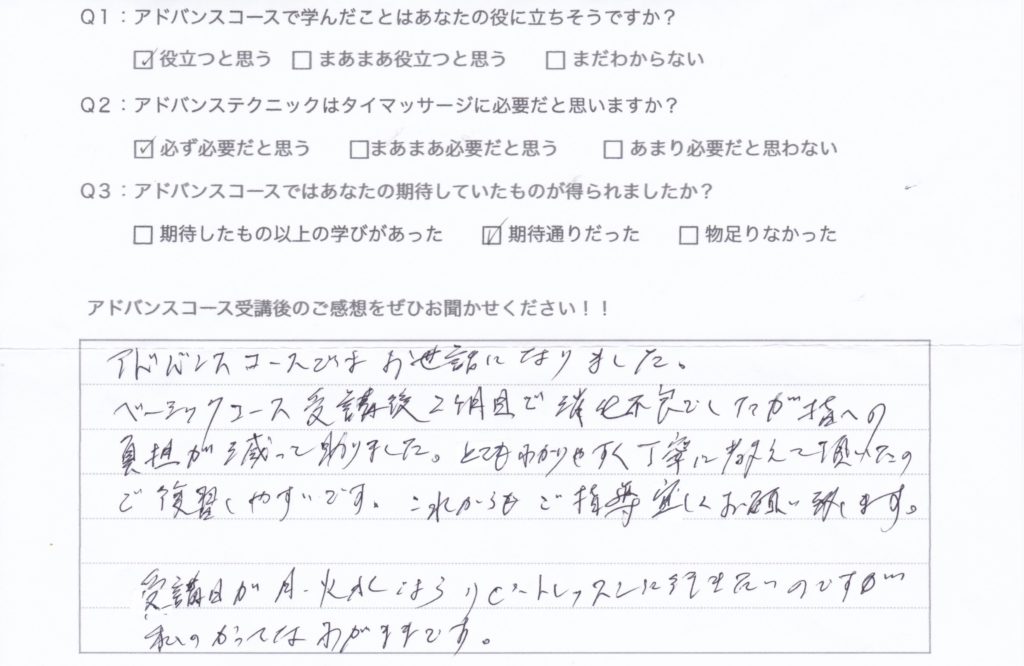 Q1：アドバンスコースで学んだことはあなたの役に立ちそうですか？
☑役立つと思う □まあまあ役立つと思う □まだわからない
Q2：アドバンステクニックはタイマッサージに必要だと思いますか？
☑必ず必要だと思う □まあまあ必要だと思う □あまり必要だと思わない
Q3：アドバンスコースではあなたの期待していたものが得られましたか？
□期待したもの以上の学びがあった ☑期待通りだった □物足りなかった
アドバンスコース受講後のご感想をぜひお聞かせください！！
アドバンスコースではお世話になりました。
ベーシックコース受講後2ヶ月目で消化不良でしたが指への
負担が減って助りました。とてもわかりやすく丁寧に教えて頂いたの
で復習しやすいです。これからもご指導宜しくお願い致します。
受講日が月・火・水 リピートレッスンに行きたいのですが
私のかってなわがままです。